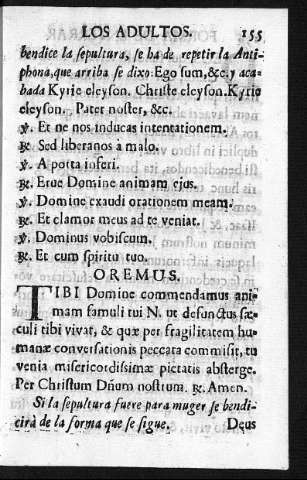 LOS ADULTOS. 155
bendice la sepultura, se ha de repetir la Anti-
phona, que arriba se dixo. Ego sum, &c. y aca-
bada Kyrie eleyson. Christe eleyson. Kyrie
eleyson. Pater noster, &c.
℣. Et ne nos inducas intentationem.
℟. Sed liberanos à malo.
℣. A porta inferi.
℟. Erue Domine animam ejus.
℣. Domine exaudi orationem meam.
℟. Et clamor meus ad te veniat.
℣. Dominus vobiscum.
℟. Et cum spiritu tuo.
OREMUS.
TIBI Domine commendamus ani-
mam famuli tui N. ut defunctus sæ-
culi tibi vivat, & quæ per fragilitatem hu-
manæ conversationis peccata commisit, tu
venia misericordissimæ pietatis absterge.
Per Christum Dñum nostrum. ℟. Amen.
Si la sepultura fuere para muger se bendi-
cirà de la forma que se sigue. Deus